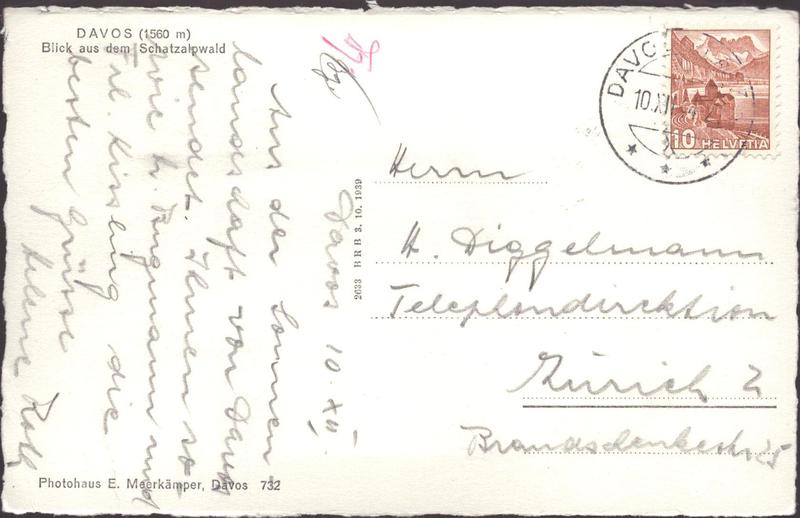 DAVOS (1560 m)
Blick aus dem Schatzalpwald
Davos 10. XII.
Aus der Sonnen-
landschaft von Davos
sendet Ihnen so
wie Hr. Zingmann und
Frl. Kissling die
besten Grüsse
Helene Roth
2633 BRB 3. 10. 1939
DAVOS
10.XII
10 HELVETIA
Herrn
H. Diggelmann
Telephondirektion
Zürich 2
Brandschenkestr. 25
Photohaus E. Meerkämper, Davos 732